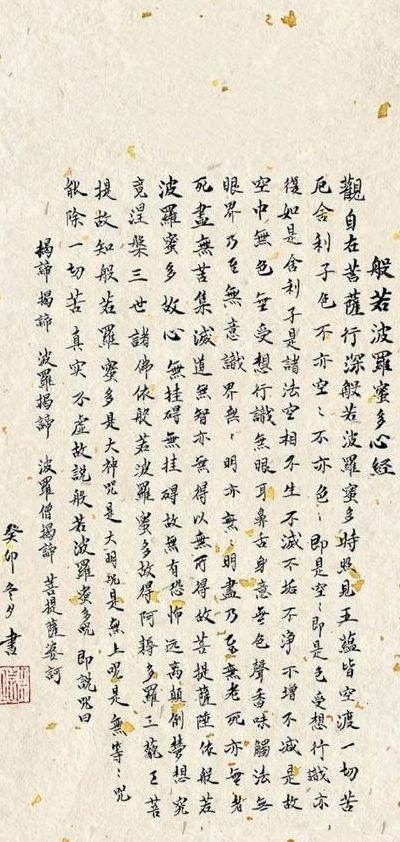 般若波羅蜜多心經
觀自在菩薩行深般若波羅蜜多時照見五蘊皆空渡一切苦
厄舍利子色不亦空〻不亦色〻即是空〻即是色受想行識亦
復如是舍利子是諸法空相不生不滅不垢不淨不增不減是故
空中無色無受想行識無眼耳鼻舌身意無色聲香味觸法無
眼界乃至無意識界無〻明亦無〻明盡乃至無老死亦無老
死盡無苦集滅道無智亦無得以無所得故菩提薩埵依般若
波羅蜜多故心無挂碍無挂碍故無有恐怖远离顛倒夢想究
竟涅槃三世諸佛依般若波羅蜜多故得阿耨多羅三藐三菩
提故知般若羅蜜多是大神咒是大明咒是無上咒是無等〻咒
能除一切苦真实不虚故説般若波羅蜜多咒即説咒曰
揭諦揭諦 波羅揭諦 波羅僧揭諦 菩提薩婆訶
癸卯冬夕書